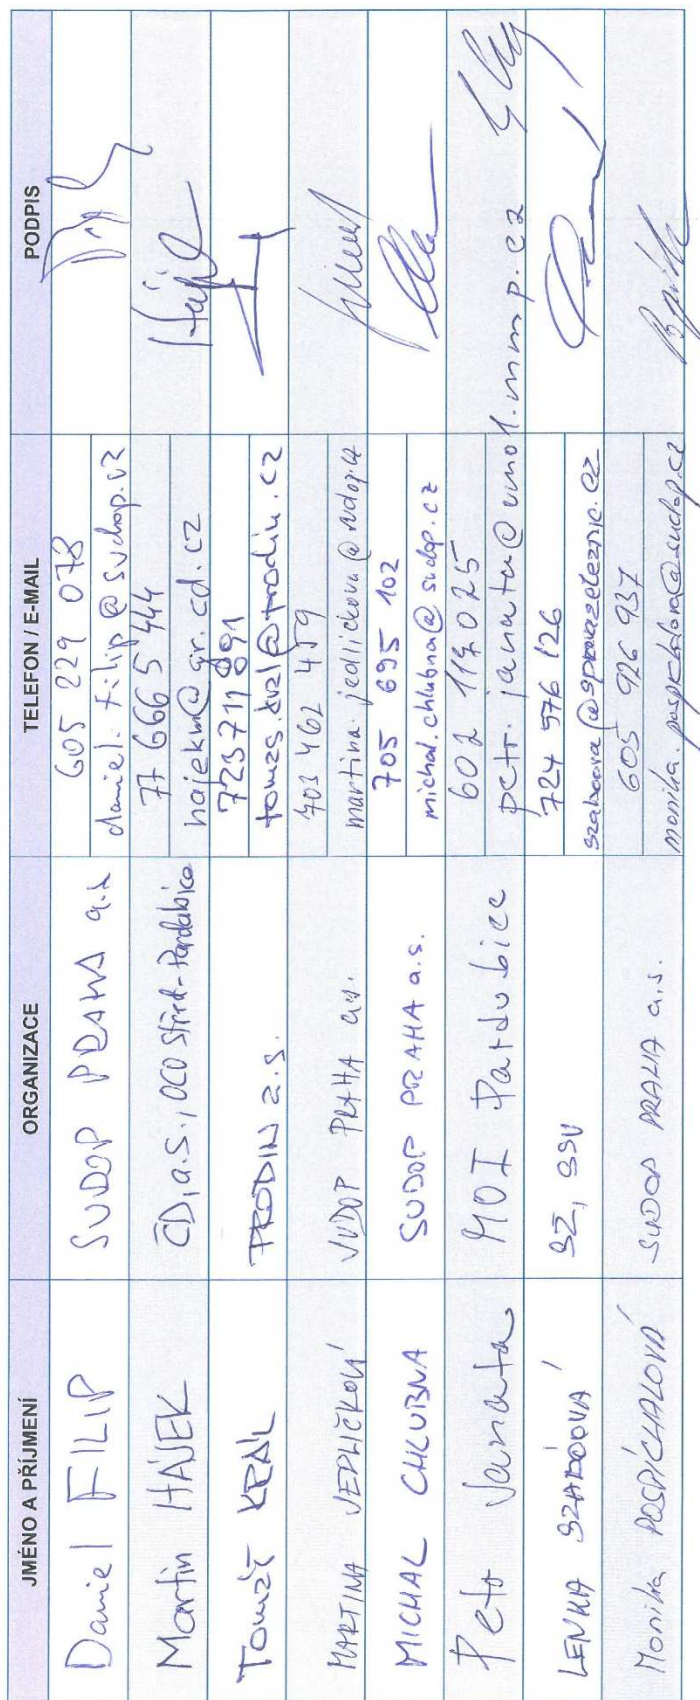 JMÉNO A PŘÍJMENÍ ORGANIZACE TELEFON / E-MAIL PODPIS
Daniel FILIP SUDOP PRAHA a.s. 605 229 078
daniel.filip@sudop.cz
Martin HÁJEK ČD, a.s., OCO Střed-Pardubice 77 666 5 444
hajekm@gr.cd.cz
Tomáš KRÁL PRODIN a.s. 723 711 891
tomas.kral@prodin.cz
MARTINA JEDLIČKOVÁ SUDOP PRAHA a.s. 703 462 459
martina.jedlickova@sudop.cz
MICHAL CHLUBNA SUDOP PRAHA a.s. 705 695 102
michal.chlubna@sudop.cz
Petr Janata MOI Pardubice 602 117 025
petr.janata@umo1.mmp.cz
LENKA SZABÓOVÁ SŽ, SSV 724 976 126
szaboova@spravazeleznic.cz
Monika POSPÍCHALOVÁ SUDOP PRAHA a.s. 605 926 937
monika.pospichalova@sudop.cz